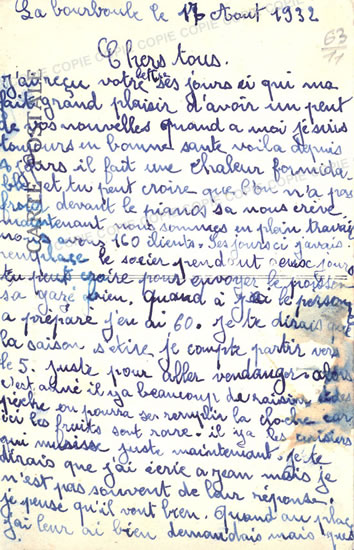 La bourboule le 17 Aout 1932
63
11
Chers tous.
J'ai reçu votre lettre ses jours ci qui ma
fait grand plaisir d'avoir un peut
de vos nouvelles quand a moi je suis
toujours en bonne santé voila depuis
jours il fait une chaleur formida
ble et tu peut croire que l'on n'a pas
froid devant le piano sa nous crève
maintenant nous sommes en plein travail
nous avons 160 clients. ses jours ci j'avais
remplacé le socier pendant jours
tu peut croire pour envoyer le poisson
sa gazé bien. Quand à le person
a préparé j'en ai 60. je te dirais que
la saison s'etire je compte partir vers
le 5. juste pour aller vendanger alors
c'est année il y a beaucoup de raisins et des
pêche on pourra se remplir la cloche car
ici les fruits sont rare. il y a les
qui juste maintenant. je te
dirais que j'ai écrie a jean mais je
n'est pas souvent de leur réponse.
je pense qu'il vont bien. Quand au plaç
j'ai leur ai bien demandais mais
CARTE POSTALE
COPIE COPIE COPIE COPIE